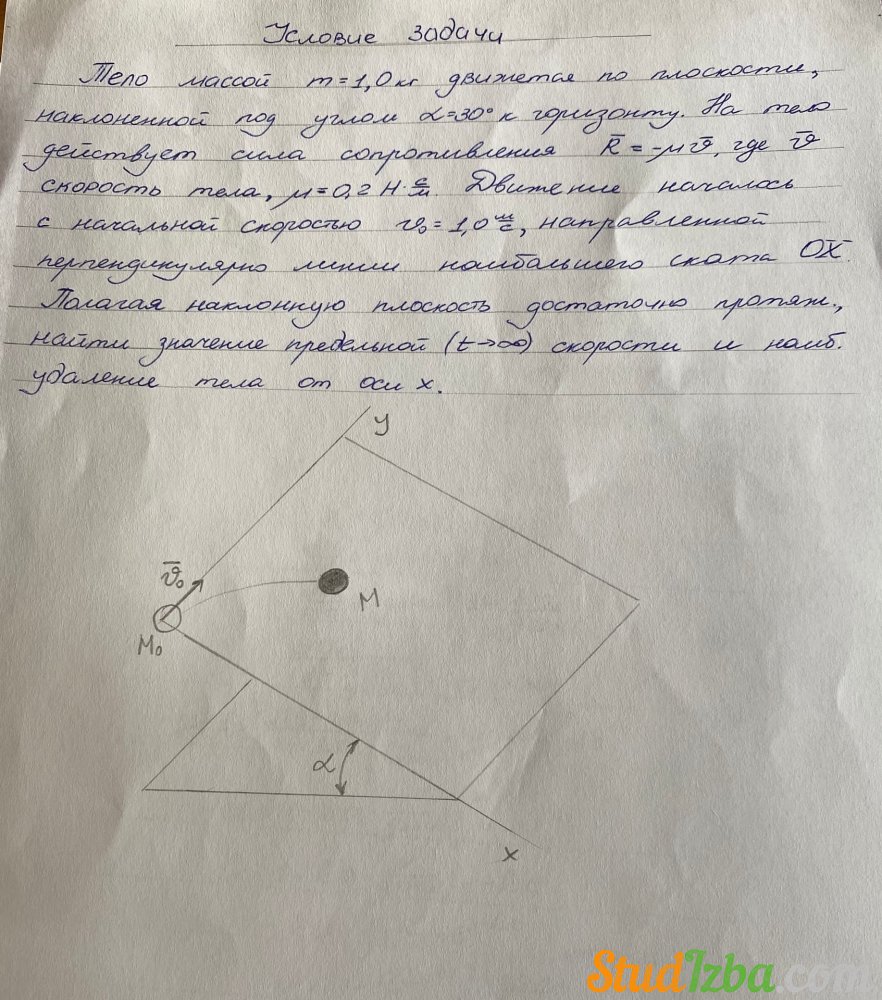 Условие задачи
Тело массой m = 1,0 кг движется по плоскости,
наклоненной под углом α=30° к горизонту. На тело
действует сила сопротивления R̄ = -μv̄, где v̄
скорость тела, μ = 0,2 Н·с/м. Движение началось
с начальной скоростью v₀ = 1,0 м/с, направленной
перпендикулярно линии наибольшего ската OX.
Полагая наклонную плоскость достаточно протяж.,
найти значение предельной (t→∞) скорости и наиб.
удаление тела от оси x.
y
v̄₀
M
M₀
α
x
StudIzba.com